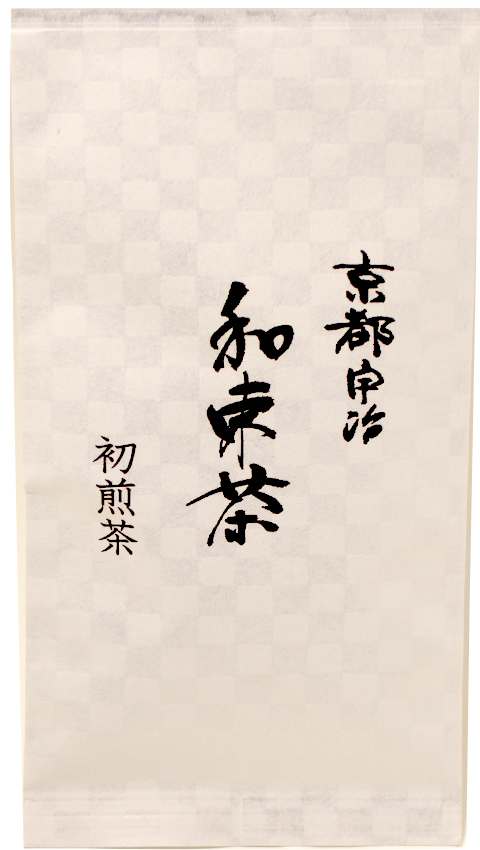 京都宇治
和束茶
初煎茶